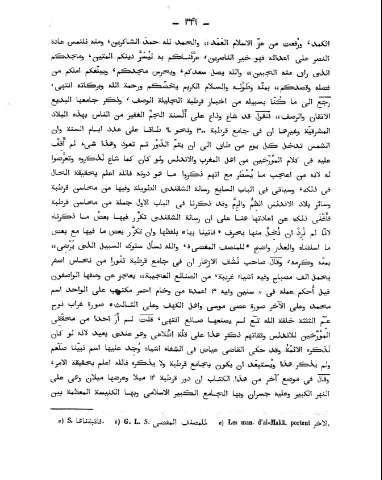 — ٣٣٩ —
الكمد، ورفعت من عزّ الاسلام العمد، والحمد لله حمد الشاكرين، ومنه نلتمس عادة
النصر على اعدائه فهو خير الناصرين، عرّفناكم به ليسرّ دينكم المتين، ومجدكم
الذى راق منه الجبين، والله يصل سعدكم، ويحرس مجدكم، ويبلّغكم املكم من
فضله وقصدكم، بمنّه وطَوْله والسلام الكريم يخصّكم ورحمة الله وبركاته انتهى،
رجع الى ما كنّا بسبيله من اخبار قرطبة الجليلة الوصف، وذكر جامعها البديع
الاتقان والرصف، فنقول قد شاع وذاع على ألسنة الجمّ الغفير من الناس بهذه البلاد
المشرقية وغيرها ان فى جامع قرطبة ٣٠٠ ونحو ٦٠ طاقا على عدد ايام السنة وان
الشمس تدخل كل يوم من طاق الى ان يتمّ الدَّوْر ثم تعود وهذا شىء لم أقف
عليه فى كلام المؤرخين من اهل المغرب والاندلس ولو كان كما شاع لذكروه وتعرّضوا
له لانه من اعجب ما يُسطَّر مع انهم ذكروا ما هو دونه فالله اعلم بحقيقة الحال
فى ذلك، وسيأتى فى الباب السابع رسالة الشقندى الطويلة وفيها من محاسن قرطبة
وسائر بلاد الاندلس الطمّ والرمّ وقد ذكرنا فى الباب الاول جملة من محاسن قرطبة
فأغنى ذلك عن اعادتها هنا على ان رسالة الشقندى تكرّر فيها بعض ما ذكرناه
لانّا لم نُرِد ان نُخِلّ منها بحرف فأتينا بها بلفظها وان تكرّر بعض ما فيها مع بعض
ما اسلفناه والعذر واضح للمنصف المغضى، والله نسأل سلوك السبيل الذى يُرضى،
بمنّه وكرمه، وقال صاحب نشق الازهار ان فى جامع قرطبة تنّورًا من نحاس اصفر
يحمل الف مصباح وفيه اشياء غريبة من الصنائع العجيبة، يعجز عن وصفها الواصفون
قيل أحكم عمله فى ٠ سنين وفيه ٣ اعمدة من رخام احمر مكتوب على الواحد اسم
محمد وعلى الآخر صورة عصى موسى واهل الكهف وعلى الثالث صورة غراب نوح
عمّ الثلثة خلقة الله تعّ لم يصنعها صانع انتهى، قلت لم أر احدا من محققى
المؤرخين للاندلس وثقاتهم ذكر هذا على قلّة اطّلاعى وهو عندى بعيد لانه لو كان
لذكره الائمّة وقد حكى القاضى عياض فى الشفاء اشياء وجد عليها اسم نبيّنا صلّعم
ولم يذكر هذا ويُستبعد ان يكون بجامع قرطبة ولا يذكره فالله اعلم بحقيقة الامر،
وقال فى موضع آخر من هذا الكتاب ان دور قرطبة ١٤ ميلا وعرضها ميلان وهى على
النهر الكبير وعليه جسران وبها الجامع الكبير الاسلامى وبها الكنيسة المعظمة بين
a) S. فاتينتاها. b) G. L. S. للمصدف المغضى. c) Les man. d'al-Makk. portent الآخر.